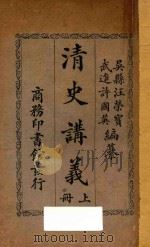 吳縣汪榮寶
武進許國英編纂
清史講義
上冊
商務印書館發行